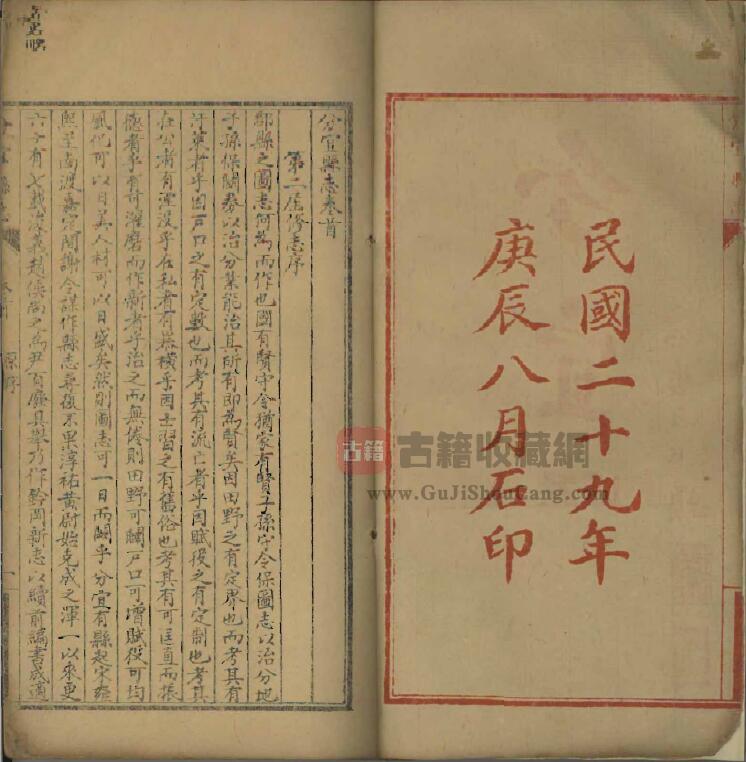 民國二十九年
庚辰八月石印
古籍 古籍收藏網
www.GuJiShouCang.com
分宜縣志卷首
第二屆修志序
郡縣之圖志何為而作也國有賢守令猶家有賢子孫守令保圖志以治分地
子孫保關券以治分業能治其所有即為賢矣因田野之有定界也而考其有
汙萊者乎因戶口之有定數也而考其有流亡者乎因賦役之有定制也考其
在公者有湮没乎在私者有暴橫乎因士習之有舊俗也考其有可匡直而振
德者乎有可濯磨而作新者乎治之而無倦則田野可闢戶口可增賦役可均
風化可以日美人材可以日盛矣然則圖志可一日而闕乎分宜有縣起宋雍
熙至南渡嘉定間謝令謀作縣志尋復不果淳祐黄尉始克成之渾一以來更
六十有七載浚義趙侯尚之為尹百廢具舉乃作鈐岡新志以續前編書成適
原序 一